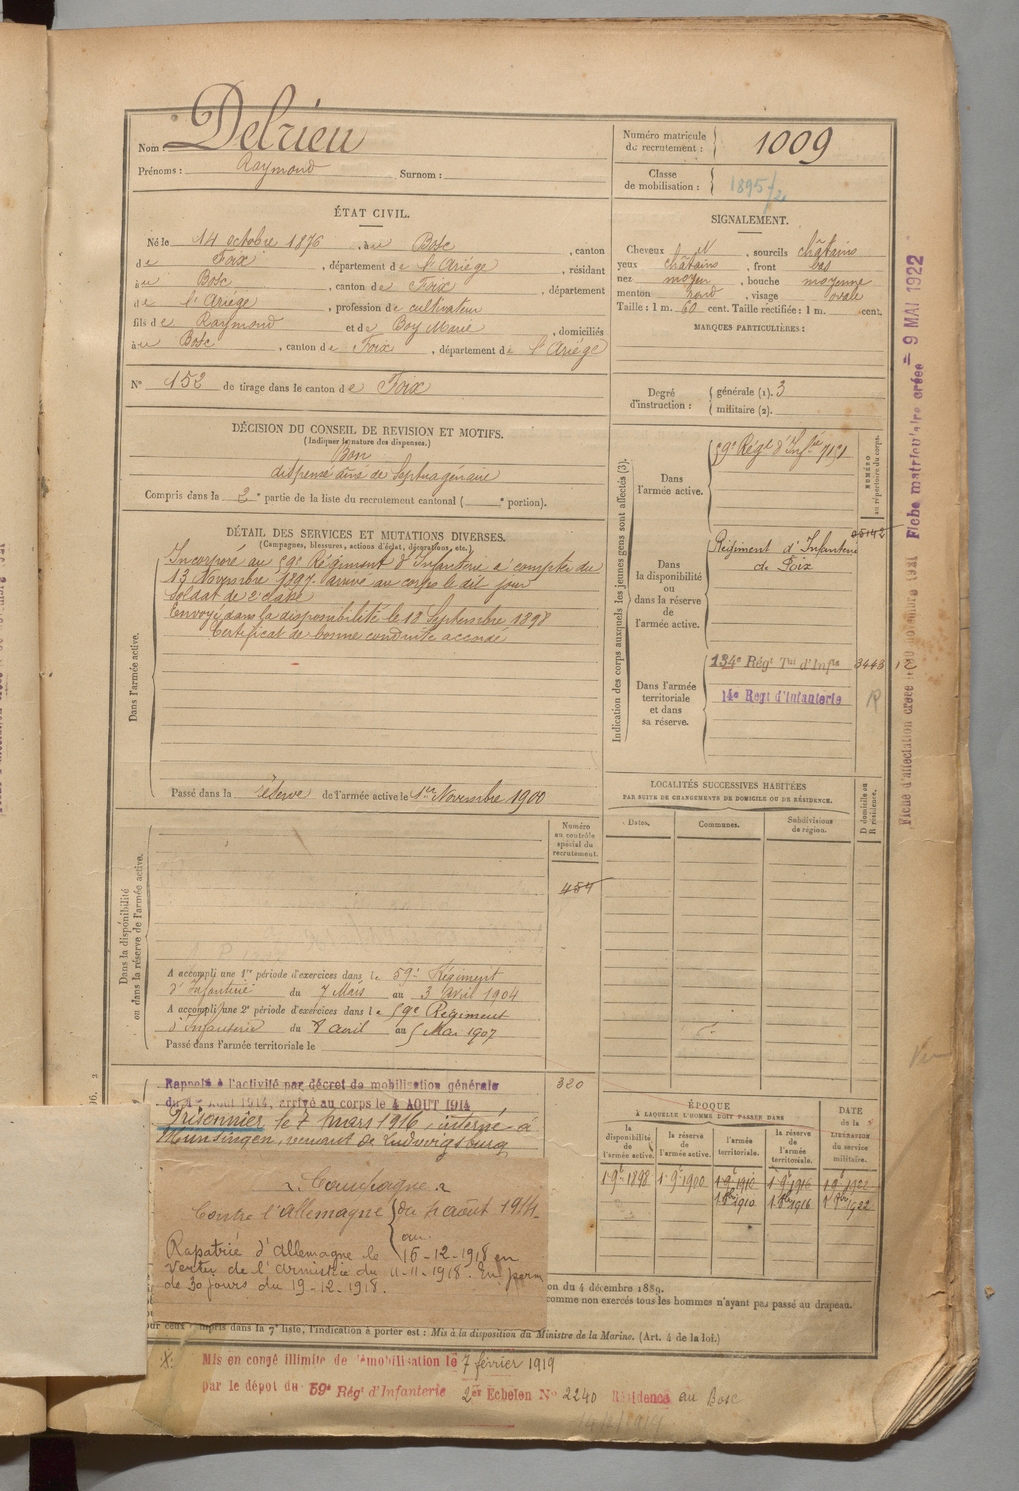 Nom : Delrieu
Prénoms : Raymond Surnom :
Numéro matricule
du recrutement : 1009
Classe
de mobilisation : 1895/
ÉTAT CIVIL.
Né le 14 octobre 1876, à u Bosc, canton
de Foix, département de l'Ariége, résidant
à u Bosc, canton de Foix, département
de l'Ariége, profession de cultivateur
fils de Raymond et de Boy Marie, domiciliés
à u Bosc, canton de Foix, département de l'Ariége
N° 152 de tirage dans le canton de Foix
SIGNALEMENT.
Cheveux N, sourcils châtains
yeux châtains, front bas
nez moyen, bouche moyenne
menton rond, visage ovale
Taille : 1 m. 60 cent. Taille rectifiée : 1 m. cent.
MARQUES PARTICULIÈRES :
Degré
d'instruction :
générale (1). 3
militaire (2).
DÉCISION DU CONSEIL DE REVISION ET MOTIFS.
(Indiquer la nature des dispenses.)
Bon
dispensé aîné de Septuagénaire
Compris dans la 2e partie de la liste du recrutement cantonal ( e portion).
DÉTAIL DES SERVICES ET MUTATIONS DIVERSES.
(Campagnes, blessures, actions d'éclat, décorations, etc.)
Dans l'armée active.
Incorporé au 59e Régiment d'Infanterie à compter du
13 Novembre 1897. Arrivé au corps le dit jour
Soldat de 2e classe
Envoyé dans la disponibilité le 18 Septembre 1898
Certificat de bonne conduite accordé
Passé dans la réserve de l'armée active le 1er Novembre 1900
Indication des corps auxquels les jeunes gens sont affectés (3).
NUMÉRO
au répertoire du corps.
Dans
l'armée active.
59e Régt d'Infie 7151
Dans
la disponibilité
ou
dans la réserve
de
l'armée active.
Régiment d'Infanterie
de Foix
Dans l'armée
territoriale
et dans
sa réserve.
134e Régt Tal d'Infie 3443
14e Regt d'Infanterie
R
LOCALITÉS SUCCESSIVES HABITÉES
PAR SUITE DE CHANGEMENTS DE DOMICILE OU DE RÉSIDENCE.
Dates.
Communes.
Subdivisions
de région.
D domicile ou
R résidence.
Dans la disponibilité
ou dans la réserve de l'armée active.
Numéro
au contrôle
spécial du
recrutement.
454
A accompli une 1re période d'exercices dans le 59e Régiment
d'Infanterie du 7 Mars au 3 avril 1904
A accompli une 2e période d'exercices dans le 59e Régiment
d'Infanterie du 8 avril au 5 Mai 1907
Passé dans l'armée territoriale le
320
Rappelé à l'activité par décret de mobilisation générale
du 1er AOUT 1914, arrivé au corps le 4 AOUT 1914
Prisonnier le 7 mars 1916, interné à
Munsingen, venant de Ludwigsburg
Campagne
Contre l'Allemagne du 4 août 1914
au
Rapatrié d'Allemagne le 16-12-1918 en
vertu de l'armistice du 11-11-1918. En perm
de 30 jours du 19-12-1918.
ÉPOQUE
À LAQUELLE L'HOMME DOIT PASSER DANS
la
disponibilité
de
l'armée active.
la réserve
de
l'armée active.
l'armée
territoriale.
la réserve
de
l'armée
territoriale.
DATE
de la
LIBÉRATION
du service
militaire.
1 9e 1898 1 9e 1900 1 9e 1910 1 9e 1916 1 9e 1922
1 8bre 1910 1 8bre 1916 1 8bre 1922
on du 4 décembre 1889.
comme non exercés tous les hommes n'ayant pas passé au drapeau.
our ceux compris dans la 7e liste, l'indication à porter est : Mis à la disposition du Ministre de la Marine. (Art. 4 de la loi.)
Mis en congé illimité de démobilisation le 7 février 1919
par le dépot du 59e Régt d'Infanterie 2er Echelon N° 2240 Résidence au Bosc
Fiche matriculaire créée = 9 MAI 1922